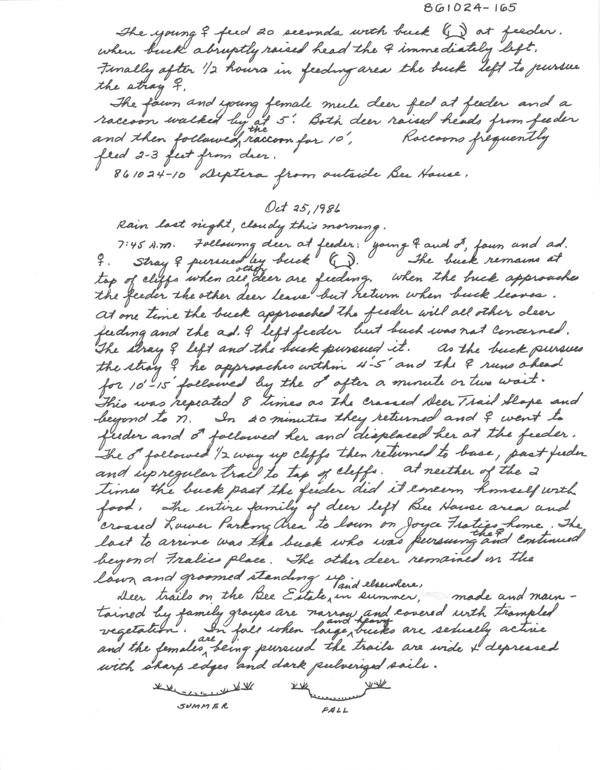 861024-165
The young ♀ feed 20 seconds with buck at feeder.
when buck abruptly raised head the ♀ immediately left.
Finally after 1/2 hours in feeding area the buck left to pursue
the stray ♀.
The fawn and young female mule deer fed at feeder and a
raccoon walked by at 5'. Both deer raised heads from feeder
and then followed the raccoon for 10'. Raccoons frequently
feed 2-3 feet from deer.
861024-10 Diptera from outside Bee House.
Oct 25, 1986
Rain last night, cloudy this morning.
7:45 A.M. Following deer at feeder: young ♀ and ♂, fawn and ad.
♀. Stray ♀ pursued by buck. The buck remains at
top of cliffs when all other deer are feeding. When the buck approaches
the feeder the other deer leave but return when buck leaves.
At one time the buck approached the feeder will all other deer
feeding and the ad. ♀ left feeder but buck was not concerned.
The stray ♀ left and the buck pursued it. As the buck pursues
the stray ♀ he approaches within 4'-5' and the ♀ runs ahead
for 10'-15' followed by the ♂ after a minute or two wait.
This was repeated 8 times as the crossed Deer Trail Slope and
beyond to N. In 20 minutes they returned and ♀ went to
feeder and ♂ followed her and displaced her at the feeder.
The ♂ followed 1/2 way up cliffs then returned to base, past feeder
and up regular trail to top of cliffs. At neither of the 2
times the buck past the feeder did it concern himself with
food. The entire family of deer left Bee House area and
crossed Lower Parking Area to lawn on Joyce Fralics home. The
last to arrive was the buck who was pursuing the ♀ and continued
beyond Fralics place. The other deer remained on the
lawn and groomed standing up.
Deer trails on the Bee Estate, and elsewhere, in summer, made and main-
tained by family groups are narrow and covered with trampled
vegetation. In fall when large and heavy bucks are sexually active
and the females are being pursued the trails are wide & depressed
with sharp edges and dark pulverized soils.
SUMMER FALL